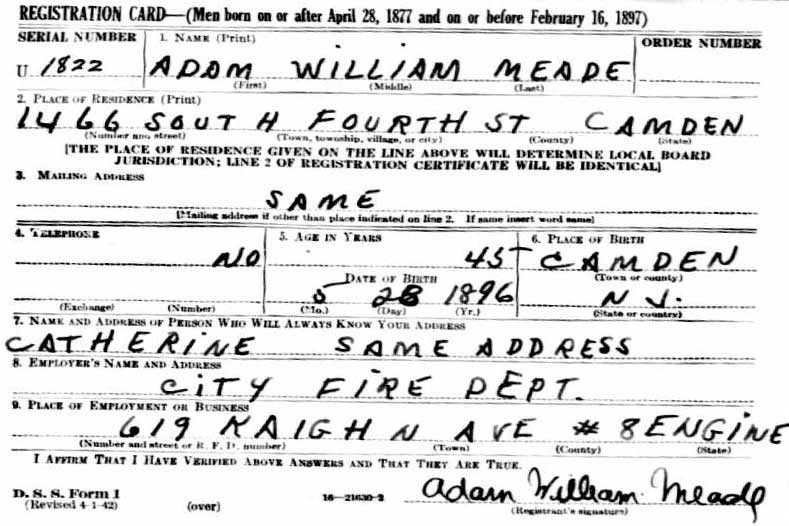 REGISTRATION CARD—(Men born on or after April 28, 1877 and on or before February 16, 1897)
SERIAL NUMBER 1. NAME (Print) ORDER NUMBER
U 1822 ADAM WILLIAM MEADE
(First) (Middle) (Last)
2. PLACE OF RESIDENCE (Print)
1466 SOUTH FOURTH ST CAMDEN
(Number and street) (Town, township, village, or city) (County) (State)
[THE PLACE OF RESIDENCE GIVEN ON THE LINE ABOVE WILL DETERMINE LOCAL BOARD
JURISDICTION; LINE 2 OF REGISTRATION CERTIFICATE WILL BE IDENTICAL]
3. MAILING ADDRESS
SAME
[Mailing address if other than place indicated on line 2. If same insert word same]
4. TELEPHONE 5. AGE IN YEARS 6. PLACE OF BIRTH
NO 45 CAMDEN
DATE OF BIRTH (Town or county)
5 28 1896 N J.
(Exchange) (Number) (Mo.) (Day) (Yr.) (State or country)
7. NAME AND ADDRESS OF PERSON WHO WILL ALWAYS KNOW YOUR ADDRESS
CATHERINE SAME ADDRESS
8. EMPLOYER'S NAME AND ADDRESS
CITY FIRE DEPT.
9. PLACE OF EMPLOYMENT OR BUSINESS
619 KAIGHN AVE # 8 ENGINE
(Number and street or R. F. D. number) (Town) (County) (State)
I AFFIRM THAT I HAVE VERIFIED ABOVE ANSWERS AND THAT THEY ARE TRUE.
D. S. S. Form 1
(Revised 4-1-42) (over) 16—21630-2 Adam William Meade
(Registrant's signature)